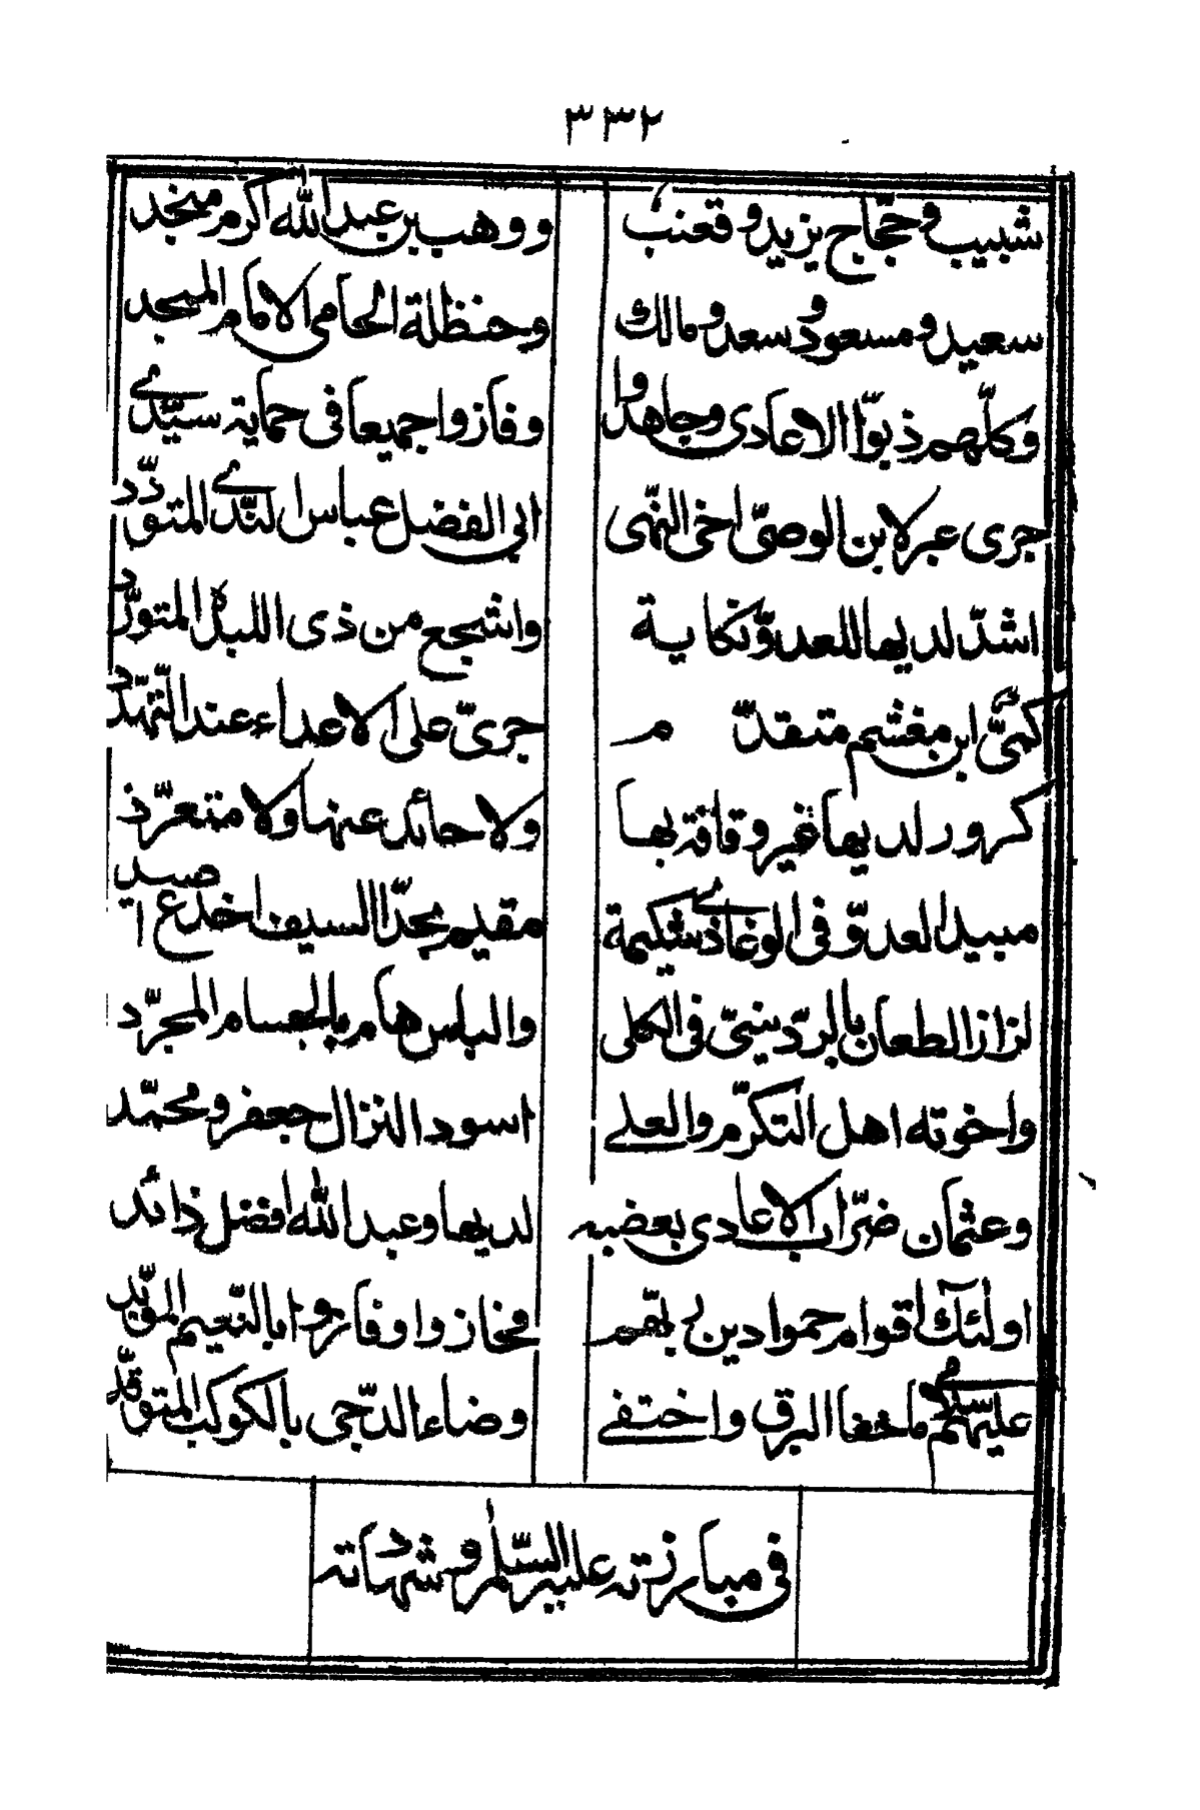 ٣٣٢
شبيب وحجّاج يزيد وقعنب ووهب بن عبد الله اكرم منجد
سعيد ومسعود وسعد ومالك وحنظلة الحامى الامام الممجد
وكلّهم ذبوّا الاعادى وجاهدوا وفازوا جميعا فى حماية سيّدى
جرى عبر لابن الوصىّ اخى النهى ابي الفضل عباس الندى المتودّد
اشدّ لديها للعدوّ نكاية واشجع من ذى اللبدة المتورّد
كمىّ ابن مغشم متقدّم جرىّ على الاعداء عند التهدّد
كرور لديها غير وقافة بها ولا حائد عنها ولا متعرّد
مبيد العدوّ فى الوغا ذى شكيمة مقيم بحدّ السيف اخدع اصيد
لزاز الطعان بالردينىّ فى الكلى والباس هام بالحسام المجرّد
واخوته اهل التكرّم والعلى اسود النزال جعفر ومحمّد
وعثمان ضرّاب الاعادى بعضبه لديها وعبد الله افضل ذائد
اولئك اقوام حموا دين ربّهم فحازوا وفازوا بالنّعيم المؤبّد
عليهم سلام ما خفا البرق واختفى وضاء الدجى بالكوكب المتوقّد
فى مبارزته عليه السّلم وشهادته